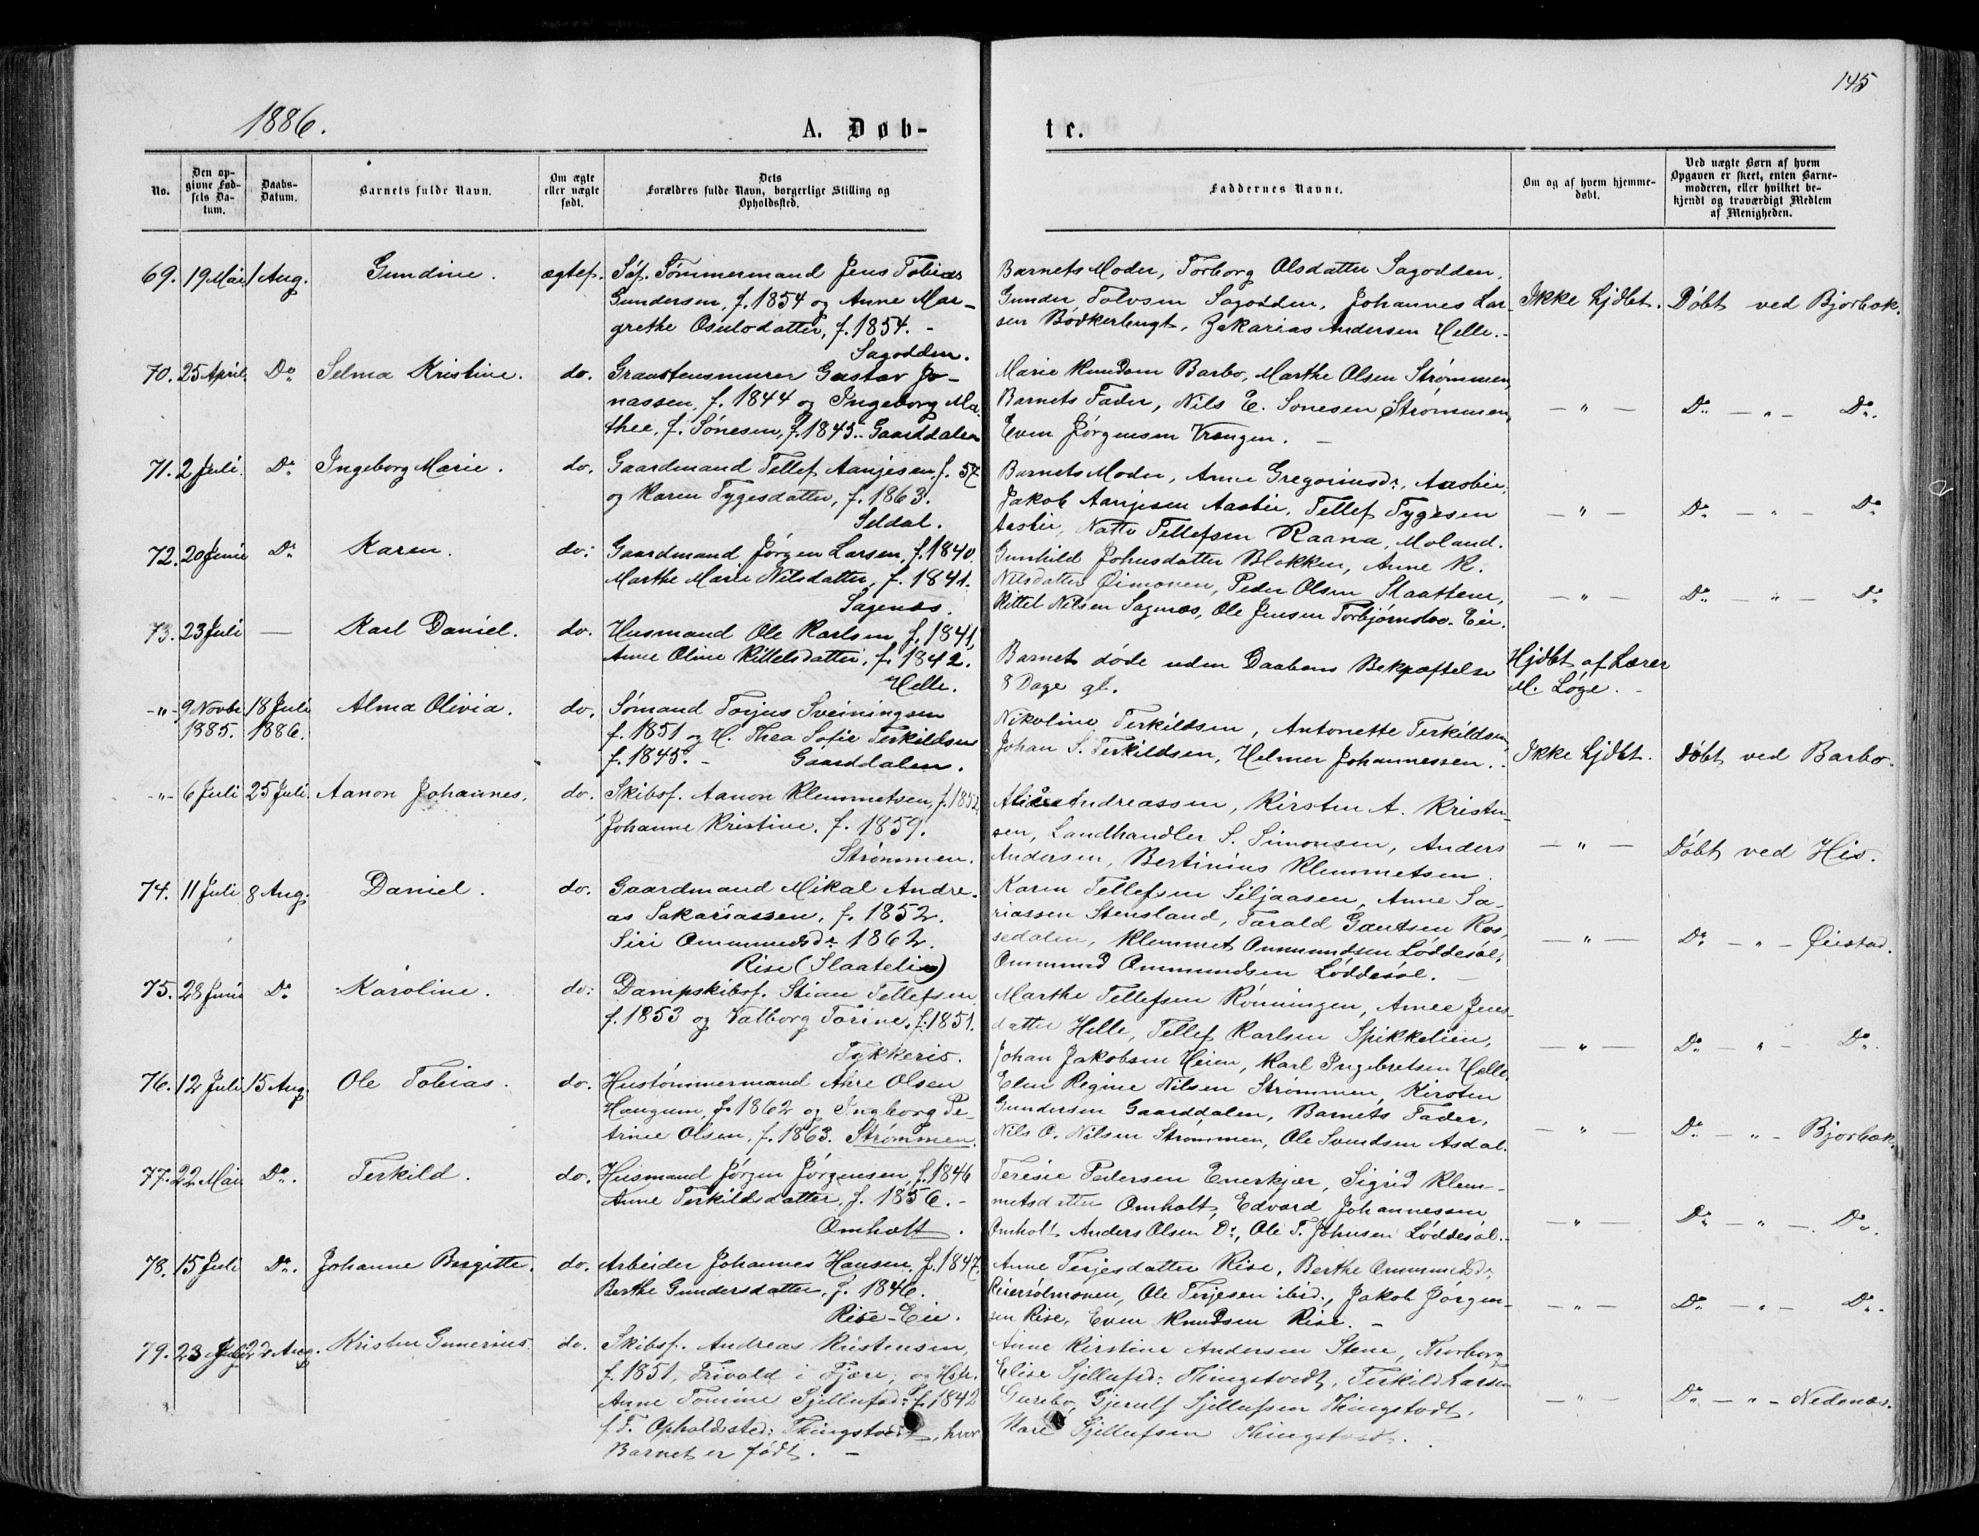 145
1886.
A. Døb-
te.
No.
Den op-
givne Fød-
sels Da-
tum.
Daabs-
Datum.
Barnets fulde Navn.
Om ægte
eller uægte
født.
Dets
Forældres fulde Navn, borgerlige Stilling og
Opholdssted.
Faddernes Navne.
Om og af hvem hjemme-
døbt.
Ved uægte Børn af hvem
Opgaven er skeet, enten Barne-
moderen, eller hvilket be-
kjendt og troværdigt Medlem
af Menigheden.
69. 19 Mai 1 Aug. Gundine. ægtef. Søf. Tømmermand Jens Tobias
Gundersen, f. 1854 og Anne Mar-
grethe Osulvdatter, f. 1854. -
Sagodden.
Barnets Moder, Torborg Olsdatter Sagodden,
Gunder Tolvsen Sagodden, Johannes Lar-
sen Bødkerbugt, Zakarias Andersen Helle. -
Ikke hjdbt. Døbt ved Bjorbæk.
70. 25 April Do Selma Kristine. do. Graastensmurer Gustav Jo-
nassen, f. 1844 og Ingeborg Ma-
thee, f. Sønesen, f. 1845. Gaarddalen
Marie Knudsen Barbo, Marthe Olsen Strømmen,
Barnets Fader, Nils E. Sonesen Strømmen,
Even Jørgensen Vrengen. -
- " - Do - " - Do.
71. 2 Juli. Do Ingeborg Marie. do. Gaardmand Tellef Aanjesen, f. 57
og Karen Tygesdatter, f. 1863.
Seldal.
Barnets Moder, Anne Gregoriusdr. Aasbie,
Jakob Aanjesen Aasbie, Tellef Tygesen
Aasbie, Natte Tellefsen Raana, Moland.
- " - Do - " - Do
72. 20 Junie Do Karen. do. Gaardmand Jørgen Larsen, f. 1840
Marthe Marie Nilsdatter, f. 1841.
Sagenæs.
Gunhild Johnsdatter Blokken, Anne K.
Nilsdatter Øimoven, Peder Olsen Slaattene,
Kittel Nilsen Sagenæs, Ole Jensen Torbjørnsbo. Eie.
- " - Do - " - Do
73. 23 Juli - Karl Daniel. do. Husmand Ole Karlsen, f. 1841,
Anne Oline Kittelsdatter, f. 1842.
Helle.
Barnet døde uden Daabens Bekræftelse
8 Dage gl.
Hjdbt af Lærer
M. Løge. -
-"- 9 Novbr 18 Juli Alma Olivia. do. Sømand Torjus Sveiningsen
1885. 1886.
f. 1851 og H. Thea Sofie Terkildsen
f. 1845. - Gaarddalen.
Nikoline Terkildsen, Antonette Terkildsen,
Johan S. Terkildsen, Helmer Johannessen.
Ikke hjdbt. Døbt ved Barbo.
-"- 6 Juli 25 Juli. Aanon Johannes. do. Skibsf. Aanon Klemmetsen, f. 1852
Johanne Kristine, f. 1859.
Strømmen.
Andreassen, Kirsten A. Kristen-
sen, Landhandler S. Simonsen, Anders
Andersen, Bertinius Klemmetsen.
- " - Døbt ved His.
74. 11 Juli 8 Aug. Daniel. do. Gaardmand Mikal Andre-
as Sakariassen, f. 1852.
Siri Ommundsdr 1862.
Rise (Slaatelie)
Karen Tellefsen Siljaasen, Anne Sa-
riassen Stensland, Tarald Gautsen Ros-
sedalen, Klemmet Ommundsen Løddesøl,
Ommund Ommundsen Løddesøl. -
- " - Do - " - Øiestad.
75. 28 Junie Do Karoline. do: Dampskibsf. Stian Tellefsen
f. 1853 og Valborg Torine, f. 1851.
Tykkeris.
Marthe Tellefsen Rønningen, Anne Jens-
datter Helle, Tellef Karlsen Spikkelien,
Johan Jakobsen Heien, Karl Ingebretsen Helle.
- " - Do - " - Do.
76. 12 Juli 15 Aug. Ole Tobias. do. Hustømmermand Are Olsen
Haugum, f. 1862 og Ingborg Pe-
trine Olsen, f. 1863. Strømmen.
Elen Regine Nilsen Strømmen, Kirsten
Gundersen Gaarddalen, Barnets Fader,
Nils O. Nilsen Strømmen, Ole Svendsen Asdal.
- " - Do - " - Bjorbæk.
77. 22 Mai. Do. Terkild. do. Husmand Jørgen Jørgensen, f. 1846
Anne Terkildsdatter, f. 1856. -
Omholt.
Teresie Pedersen Enerkjær, Sigrid Klem-
metsdatter Omholt, Edvard Johannessen
Omholt. Anders Olsen Do, Ole T. Johnsen Løddesøl.
- " - Do " - Do.
78. 15 Juli Do. Johanne Birgitte. do. Arbeider Johannes Hansen, f. 1847.
Berthe Gundersdatter, f. 1846.
Rise-Eie.
Anne Terjesdatter Rise, Berthe Ommundsdr
Reiersølmoven, Ole Terjesen ibid., Jakob Jørgen-
sen Rise, Even Knudsen Rise. -
- " - Do - " - Do.
79. 23 Juli 22 Aug. Kristen Gunerius. do. Skibsf. Andreas Kristensen,
f. 1851, Trivold i Fjære, og Hstr.
Anne Tomine Sjellufsdr f. 1842
f. T. Opholdssted: Thingstvedt, hvor
Barnet er født. -
Anne Kirstine Andersen Stene, Norborg
Elise Sjellufsd: Thingstvedt, Terkild Larsen
Gurebo, Gjerulf Sjellufsen Thingstvedt,
Sjellufsen Thingstvedt.
- " - Do - " - Nedenæs.